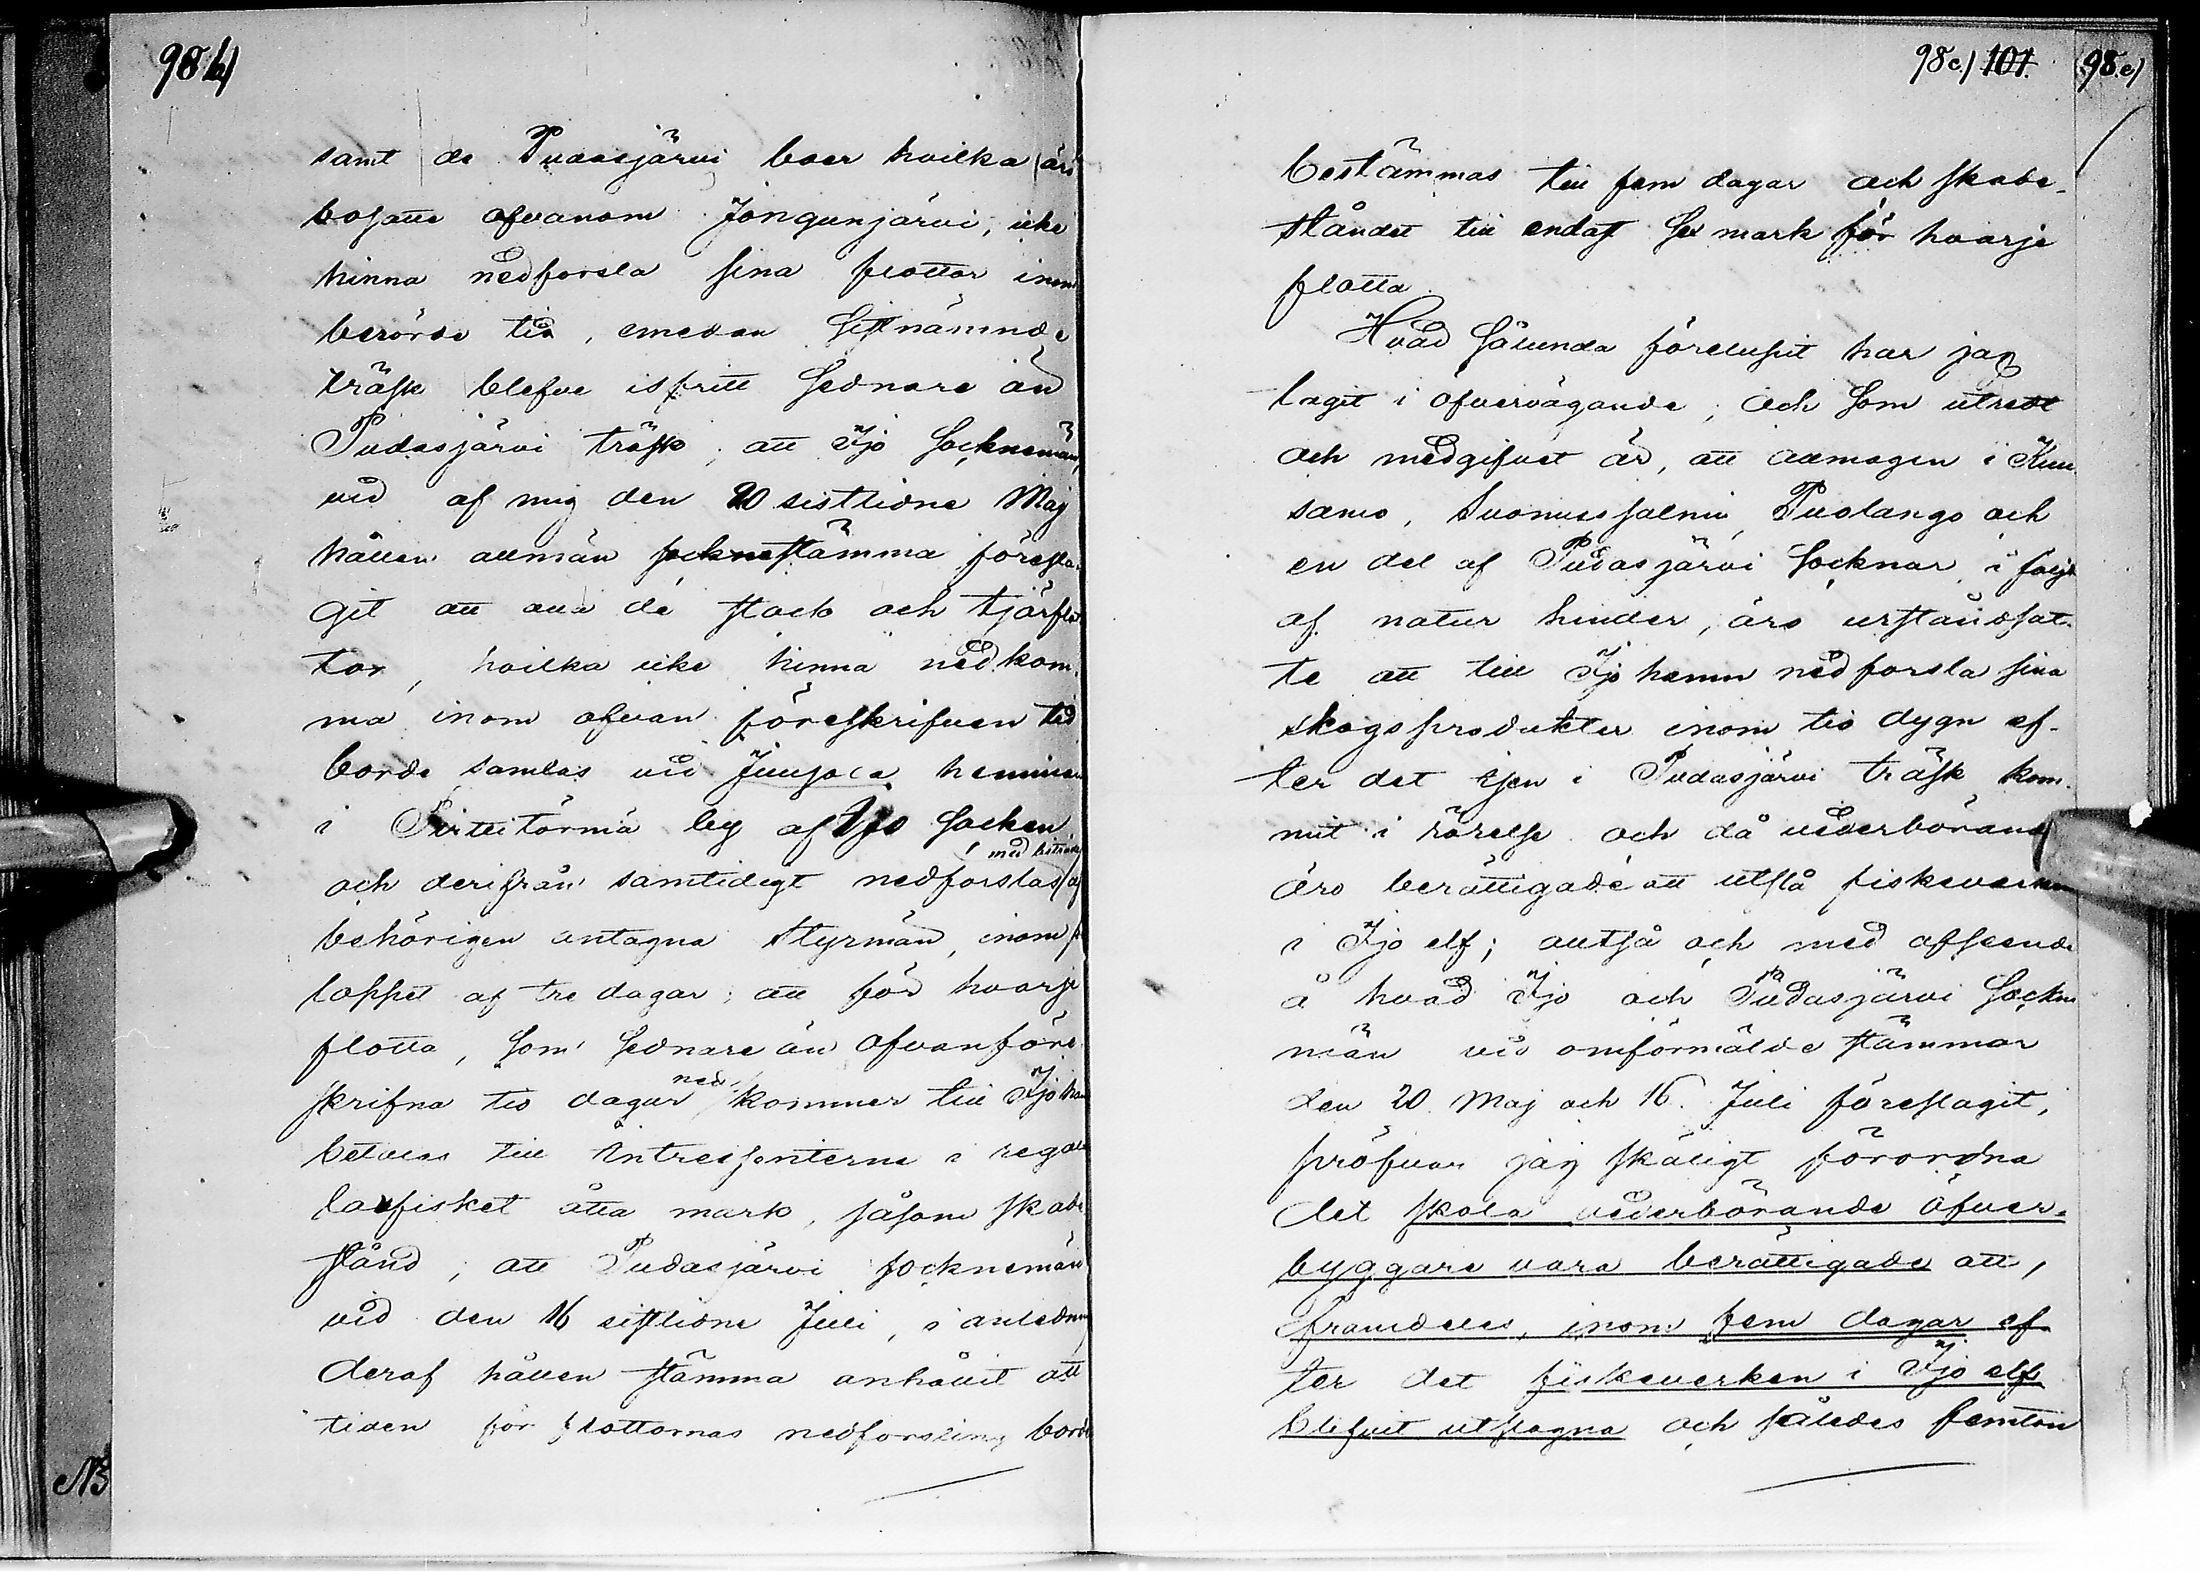 98 b)
samt de Pudasjärvi boer hvilka äro
bosatte ofvanom Jongunjärvi, icke
hinna nedforsla sina flottor inom
berörde tid, emedan sistnämnde
träsk blefve isfritt sednare än
Pudasjärvi träsk; att Ijo Socknemän,
vid af mig den 20 sistlidne Maj
hållen allmän socknestämma föresla-
git att alla de stock och tjärflot
tor, hvilka icke hinna nedkom-
ma inom ofvan föreskrifven tid
borde samlas vid Juujola hemman
i Pirttitörmä by af Ijo Socken
med biträde
och derifrån samtidigt nedforslas af
behörigen antagna Styrmän, inom för
loppet af tre dagar; att för hvarje
flotta, som sednare än ofvanföre
skrifna tio dagar nedkommer till Ijo hamn
betalas till Intressenterne i regala
laxfisket åtta mark, såsom skade
stånd; att Pudasjärvi socknemän
vid den 16 sistlidne Juli, i anledning
deraf hållen stämma anhållit att
tiden för flottornas nedforsling borde
NB
98 c) 101. 98.c)
bestämmas till fem dagar och skade-
ståndet till endast sex mark för hvarje
flotta.
Hvad sålunda förelupit har jag
tagit i öfvervägande; Och som utredt
och medgifvet är, att allmogen i Kuu
samo, Suomussalmi, Puolango och
en del af Pudasjärvi Socknar, i följd
af natur hinder, äro urståndsat-
te att till Ijo hamn nedforsla sina
skogsprodukter inom tio dygn ef-
ter det isen i Pudasjärvi träsk kom-
mit i rörelse och då vederbörande
äro berättigade att utslå fiskeverken
i Ijo elf; alltså och med afseende
å hvad Ijo och Pudasjärvi Sockne
män vid omförmälde stämmor
den 20. Maj och 16. Juli föreslagit,
pröfvar jag skäligt förordna
det skola vederbörande öfver-
byggare vara berättigade att,
framdeles, inom fem dagar ef-
ter det fiskeverken i Ijo elf
blifvit utslagna och således femton